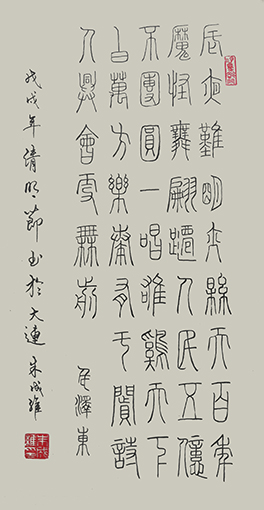 長夜難明赤縣天百年
魔怪舞翩躚人民五億
不團圓一唱雄雞天下
白萬方樂奏有于闐詩
人興會更無前 毛澤東
戊戌年清明節書於大連